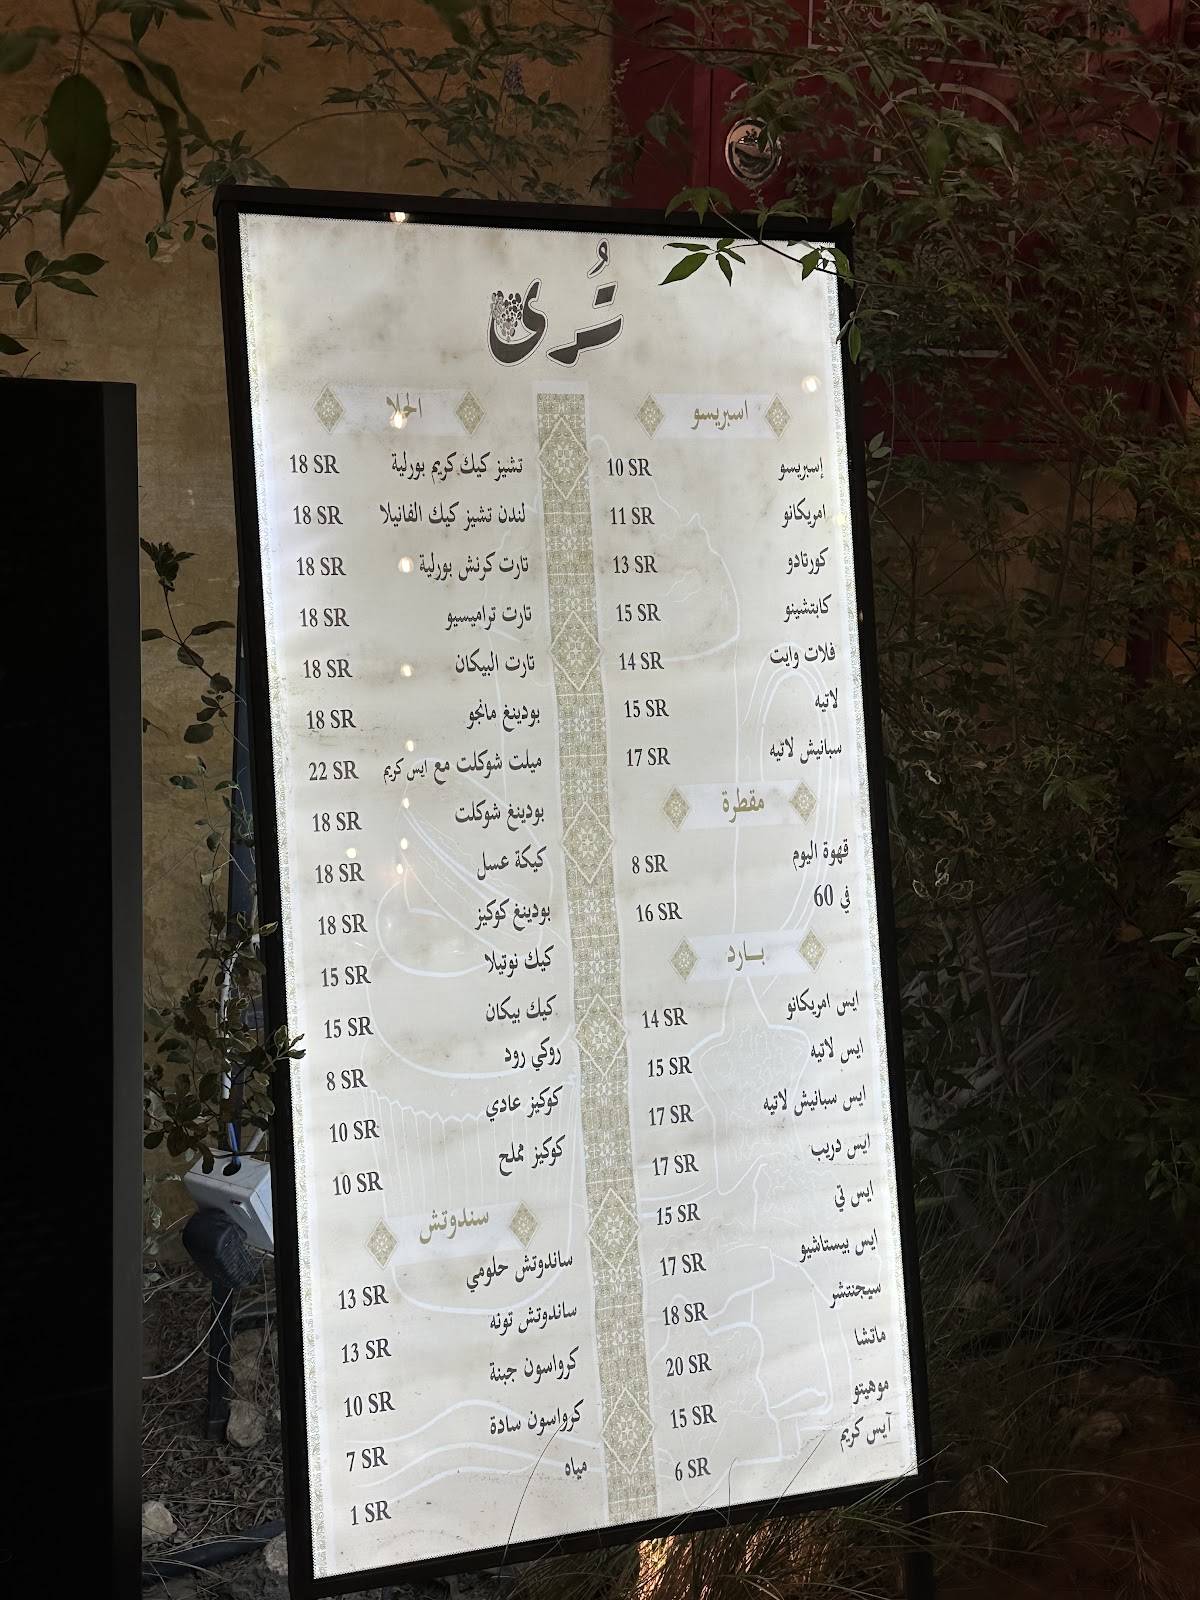 تُرى
اسبريسو
إسبريسو 10 SR
امريكانو 11 SR
كورتادو 13 SR
كابتشينو 15 SR
فلات وايت 14 SR
لاتيه 15 SR
سبانيش لاتيه 17 SR
مقطرة
قهوة اليوم 8 SR
في 60 16 SR
بارد
ايس امريكانو 14 SR
ايس لاتيه 15 SR
ايس سبانيش لاتيه 17 SR
ايس دريب 17 SR
ايس تي 15 SR
ايس بيستاشيو 17 SR
سيجنتشر 18 SR
ماتشا 20 SR
موهيتو 15 SR
آيس كريم 6 SR
الحلا
تشيز كيك كريم بورلية 18 SR
لندن تشيز كيك الفانيلا 18 SR
تارت كرنش بورلية 18 SR
تارت تراميسيو 18 SR
تارت البيكان 18 SR
بودينغ مانجو 18 SR
ميلت شوكلت مع ايس كريم 22 SR
بودينغ شوكلت 18 SR
كيكة عسل 18 SR
بودينغ كوكيز 18 SR
كيك نوتيلا 15 SR
كيك بيكان 15 SR
روكي رود 8 SR
كوكيز عادي 10 SR
كوكيز مملح 10 SR
سندوتش
ساندوتش حلومي 13 SR
ساندوتش تونه 13 SR
كرواسون جبنة 10 SR
كرواسون سادة 7 SR
مياه 1 SR